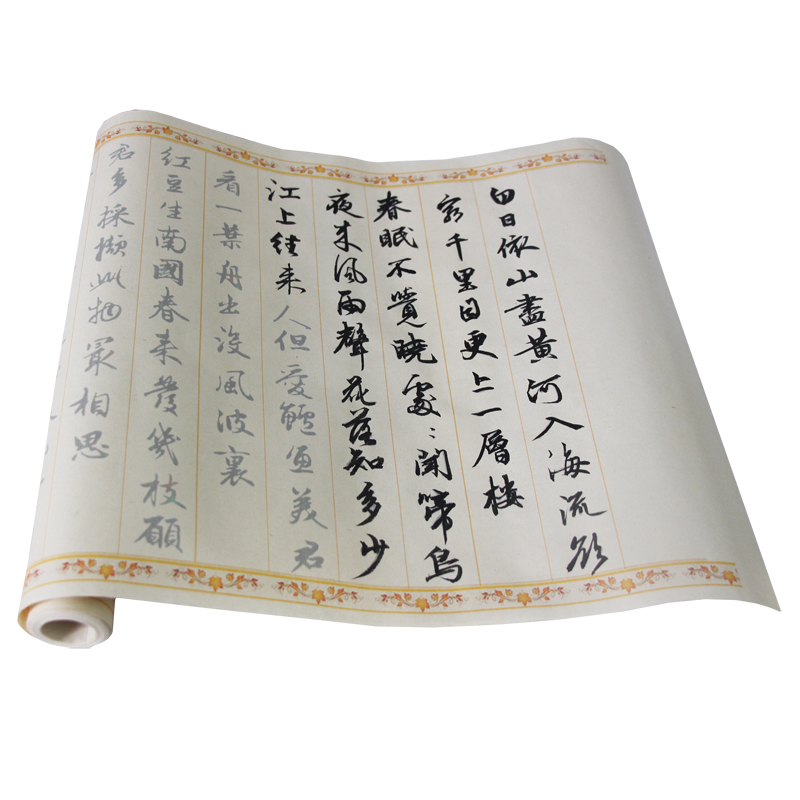 白日依山盡黃河入海流欲
窮千里目更上一層樓
春眠不覺曉處〻聞啼鳥
夜來風雨聲花落知多少
江上往來人但愛鱸魚美君
看一葉舟出沒風波裏
紅豆生南國春來發幾枝願
君多採擷此物最相思